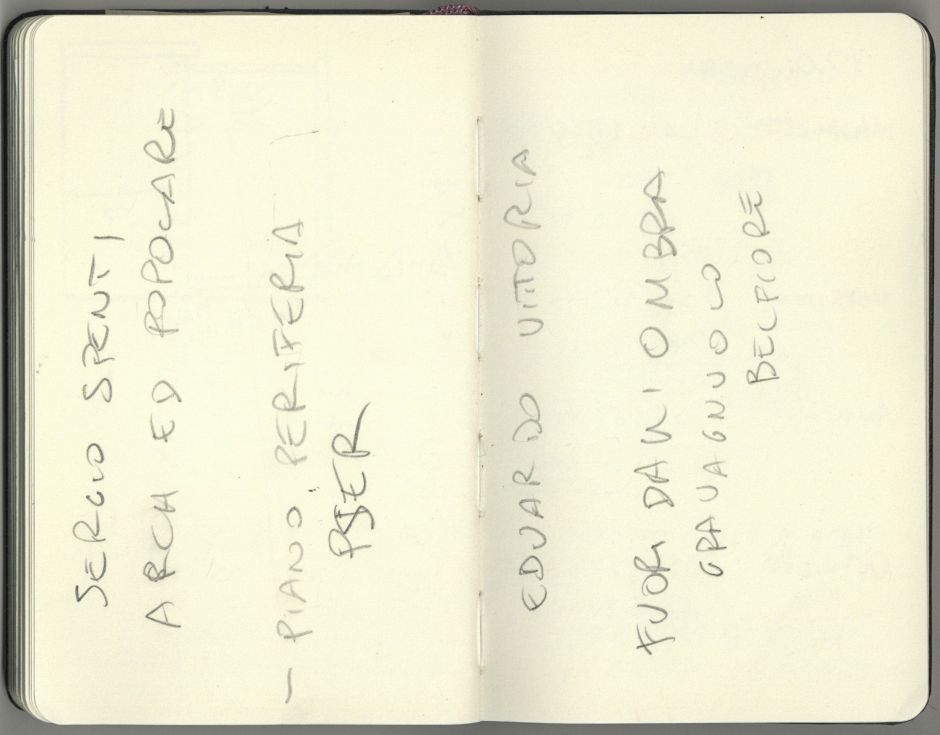 SERGIO STENTI
ARCH ED POPOLARE
— PIANO PERIFERIA
PSER
EDUARDO VITTORIA
FUORI DALL'OMBRA
GRAVAGNUOLO
BELFIORE